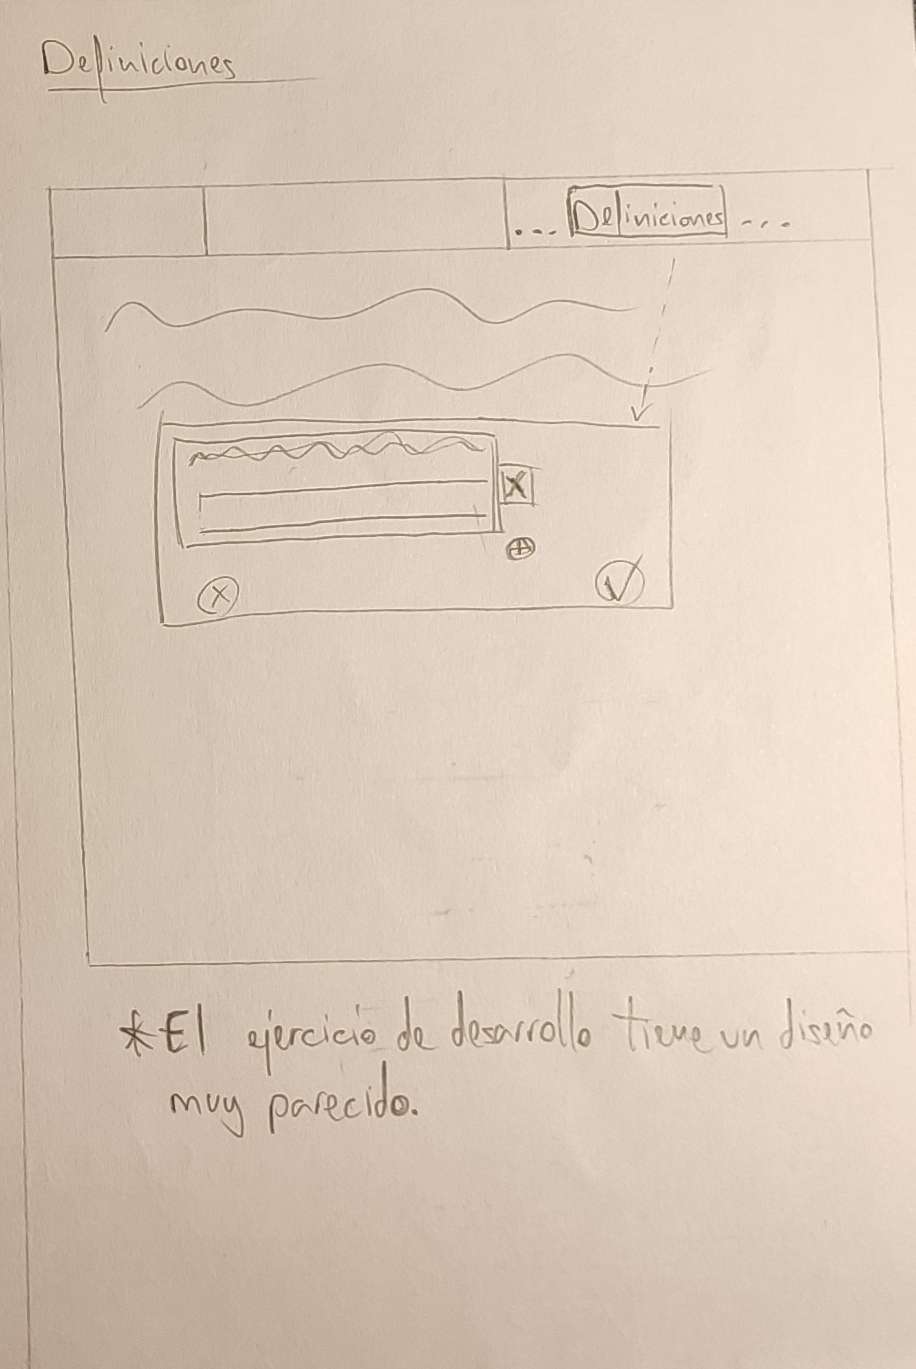 Definiciones
... Definiciones ...
*El ejercicio de desarrollo tiene un diseño
muy parecido.